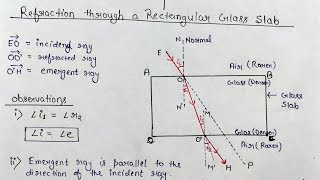 Refraction through a Rectangular Glass Slab
EO = incident ray
OO' = refracted ray
O'H = emergent ray
observations
i) Li₁ = Lr₂
Li = Le
ii) Emergent ray is parallel to the
direction of the incident ray.
N Normal
E
Air (Rarer)
A
O
B
Glass (Denser)
Glass
Slab
N'
M
D
O'
Glass (Denser)
Air (Rarer)
M'
H
P